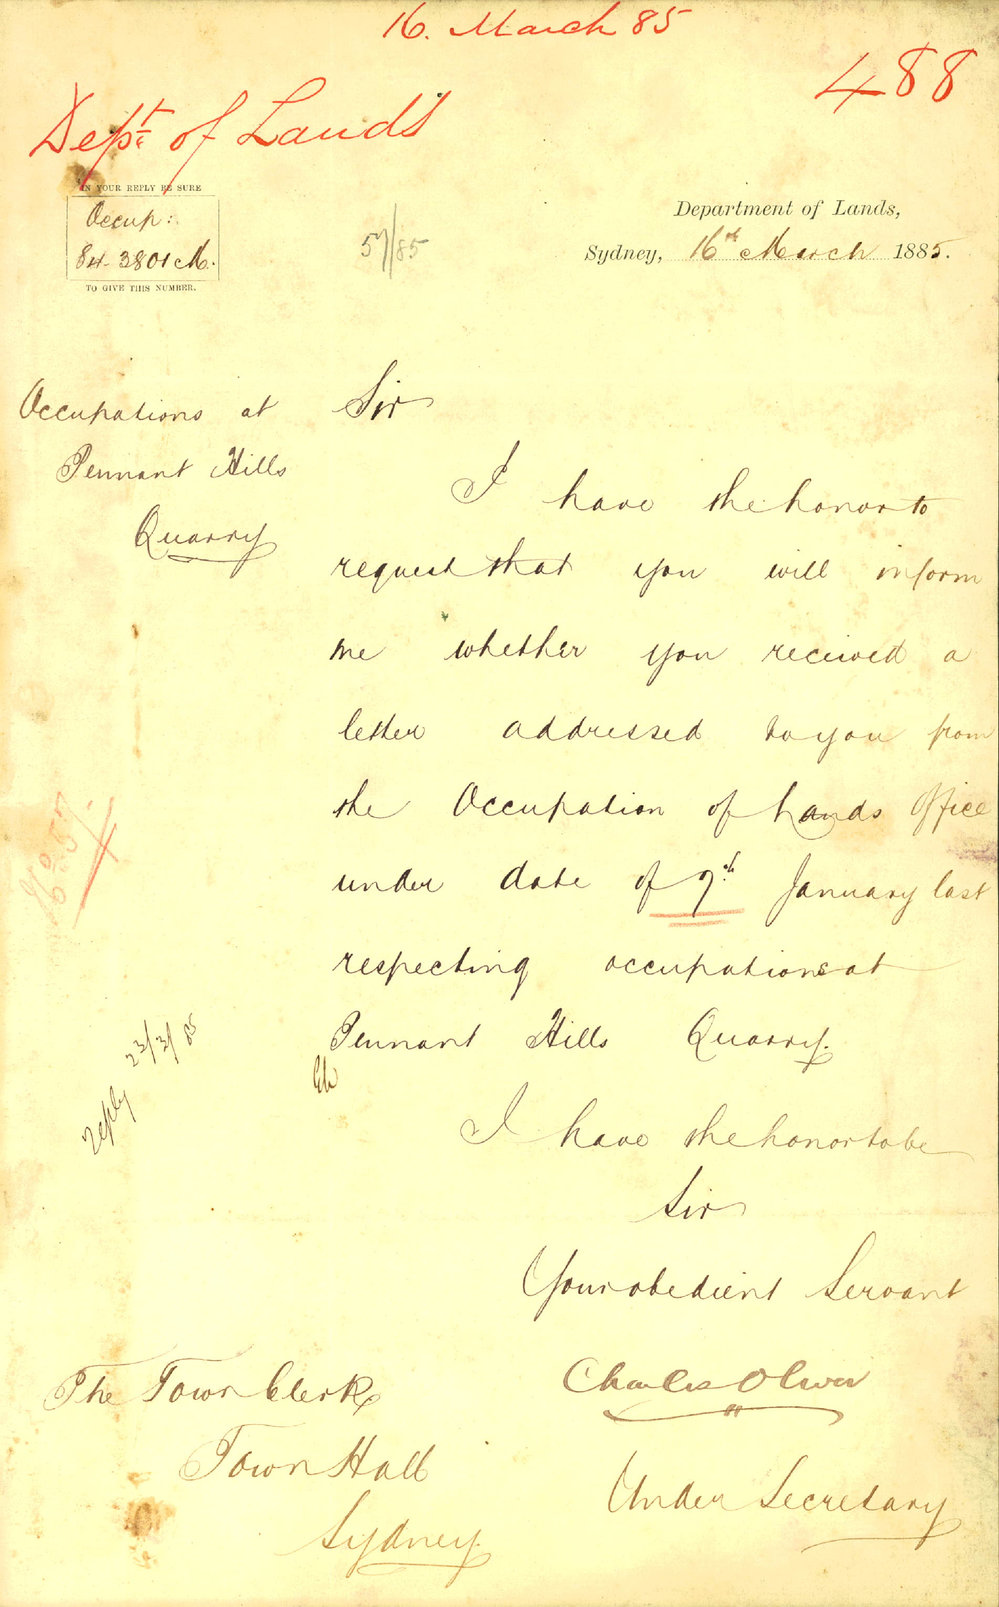 16. March 85
488
Dept. of Lands
IN YOUR REPLY BE SURE
Occup:
84. 3801 M.
TO GIVE THIS NUMBER.
57/85
Department of Lands,
Sydney, 16th March 1885.
Occupations at
Pennant Hills
Quarry
Sir
I have the honor to
request that you will inform
me whether you received a
letter addressed to you from
the Occupation of Lands Office
under date of 7th January last
respecting occupations at
Pennant Hills Quarry.
No. 57
reply 23/3/85
I have the honor to be
Sir
Your obedient Servant
Charles Oliver
Under Secretary
The Town Clerk
Town Hall
Sydney.